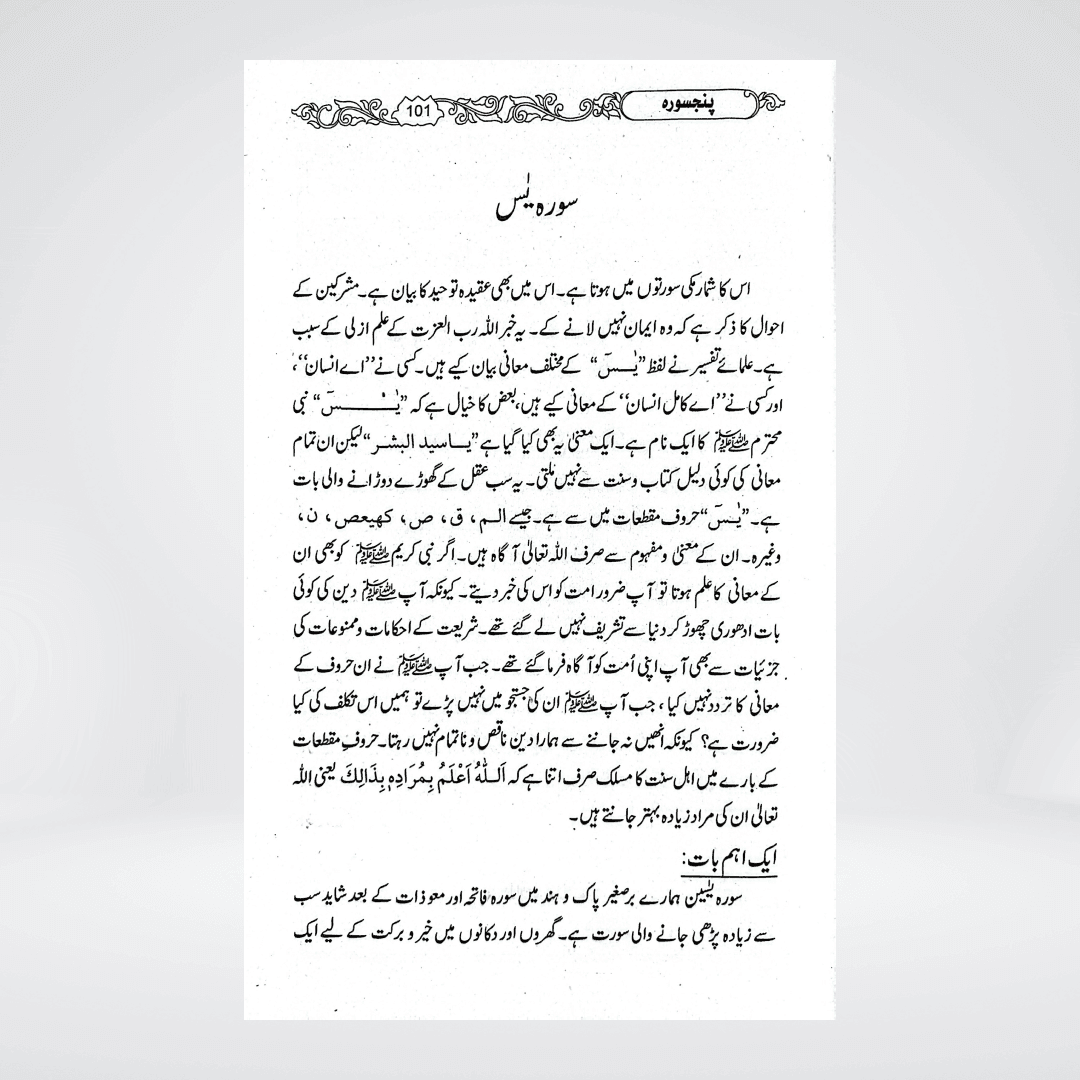 پنجسورہ
101
سورہ یٰس
اس کا شمار مکی سورتوں میں ہوتا ہے۔ اس میں بھی عقیدہ توحید کا بیان ہے۔ مشرکین کے
احوال کا ذکر ہے کہ وہ ایمان نہیں لانے کے۔ یہ خبر اللہ رب العزت کے علم ازلی کے سبب
ہے۔ علمائے تفسیر نے لفظ ”یٰسٓ“ کے مختلف معانی بیان کیے ہیں۔ کسی نے ”اے انسان“،
اور کسی نے ”اے کامل انسان“ کے معانی کیے ہیں، بعض کا خیال ہے کہ ”یٰسٓ“ نبی
محترم ﷺ کا ایک نام ہے۔ ایک معنیٰ یہ بھی کیا گیا ہے ”یاسید البشر“ لیکن ان تمام
معانی کی کوئی دلیل کتاب وسنت سے نہیں ملتی۔ یہ سب عقل کے گھوڑے دوڑانے والی بات
ہے۔ ”یٰسٓ“ حروف مقطعات میں سے ہے۔ جیسے الم، ق، ص، کھیعص، ن،
وغیرہ۔ ان کے معنیٰ ومفہوم سے صرف اللہ تعالیٰ آگاہ ہیں۔ اگر نبی کریم ﷺ کو بھی ان
کے معانی کا علم ہوتا تو آپ ضرور امت کو اس کی خبر دیتے۔ کیونکہ آپ ﷺ دین کی کوئی
بات ادھوری چھوڑ کر دنیا سے تشریف نہیں لے گئے تھے۔ شریعت کے احکامات وممنوعات کی
جزئیات سے بھی آپ اپنی اُمت کو آگاہ فرما گئے تھے۔ جب آپ ﷺ نے ان حروف کے
معانی کا تردد نہیں کیا، جب آپ ﷺ ان کی جستجو میں نہیں پڑے تو ہمیں اس تکلف کی کیا
ضرورت ہے؟ کیونکہ انھیں نہ جاننے سے ہمارا دین ناقص و ناتمام نہیں رہتا۔ حروفِ مقطعات
کے بارے میں اہل سنت کا مسلک صرف اتنا ہے کہ اَللّٰهُ اَعْلَمُ بِمُرَادِهٖ بِذَالِكَ یعنی اللہ
تعالیٰ ان کی مراد زیادہ بہتر جانتے ہیں۔
ایک اہم بات:
سورہ یٰسین ہمارے برصغیر پاک و ہند میں سورہ فاتحہ اور معوذات کے بعد شاید سب
سے زیادہ پڑھی جانے والی سورت ہے۔ گھروں اور دکانوں میں خیر و برکت کے لیے ایک